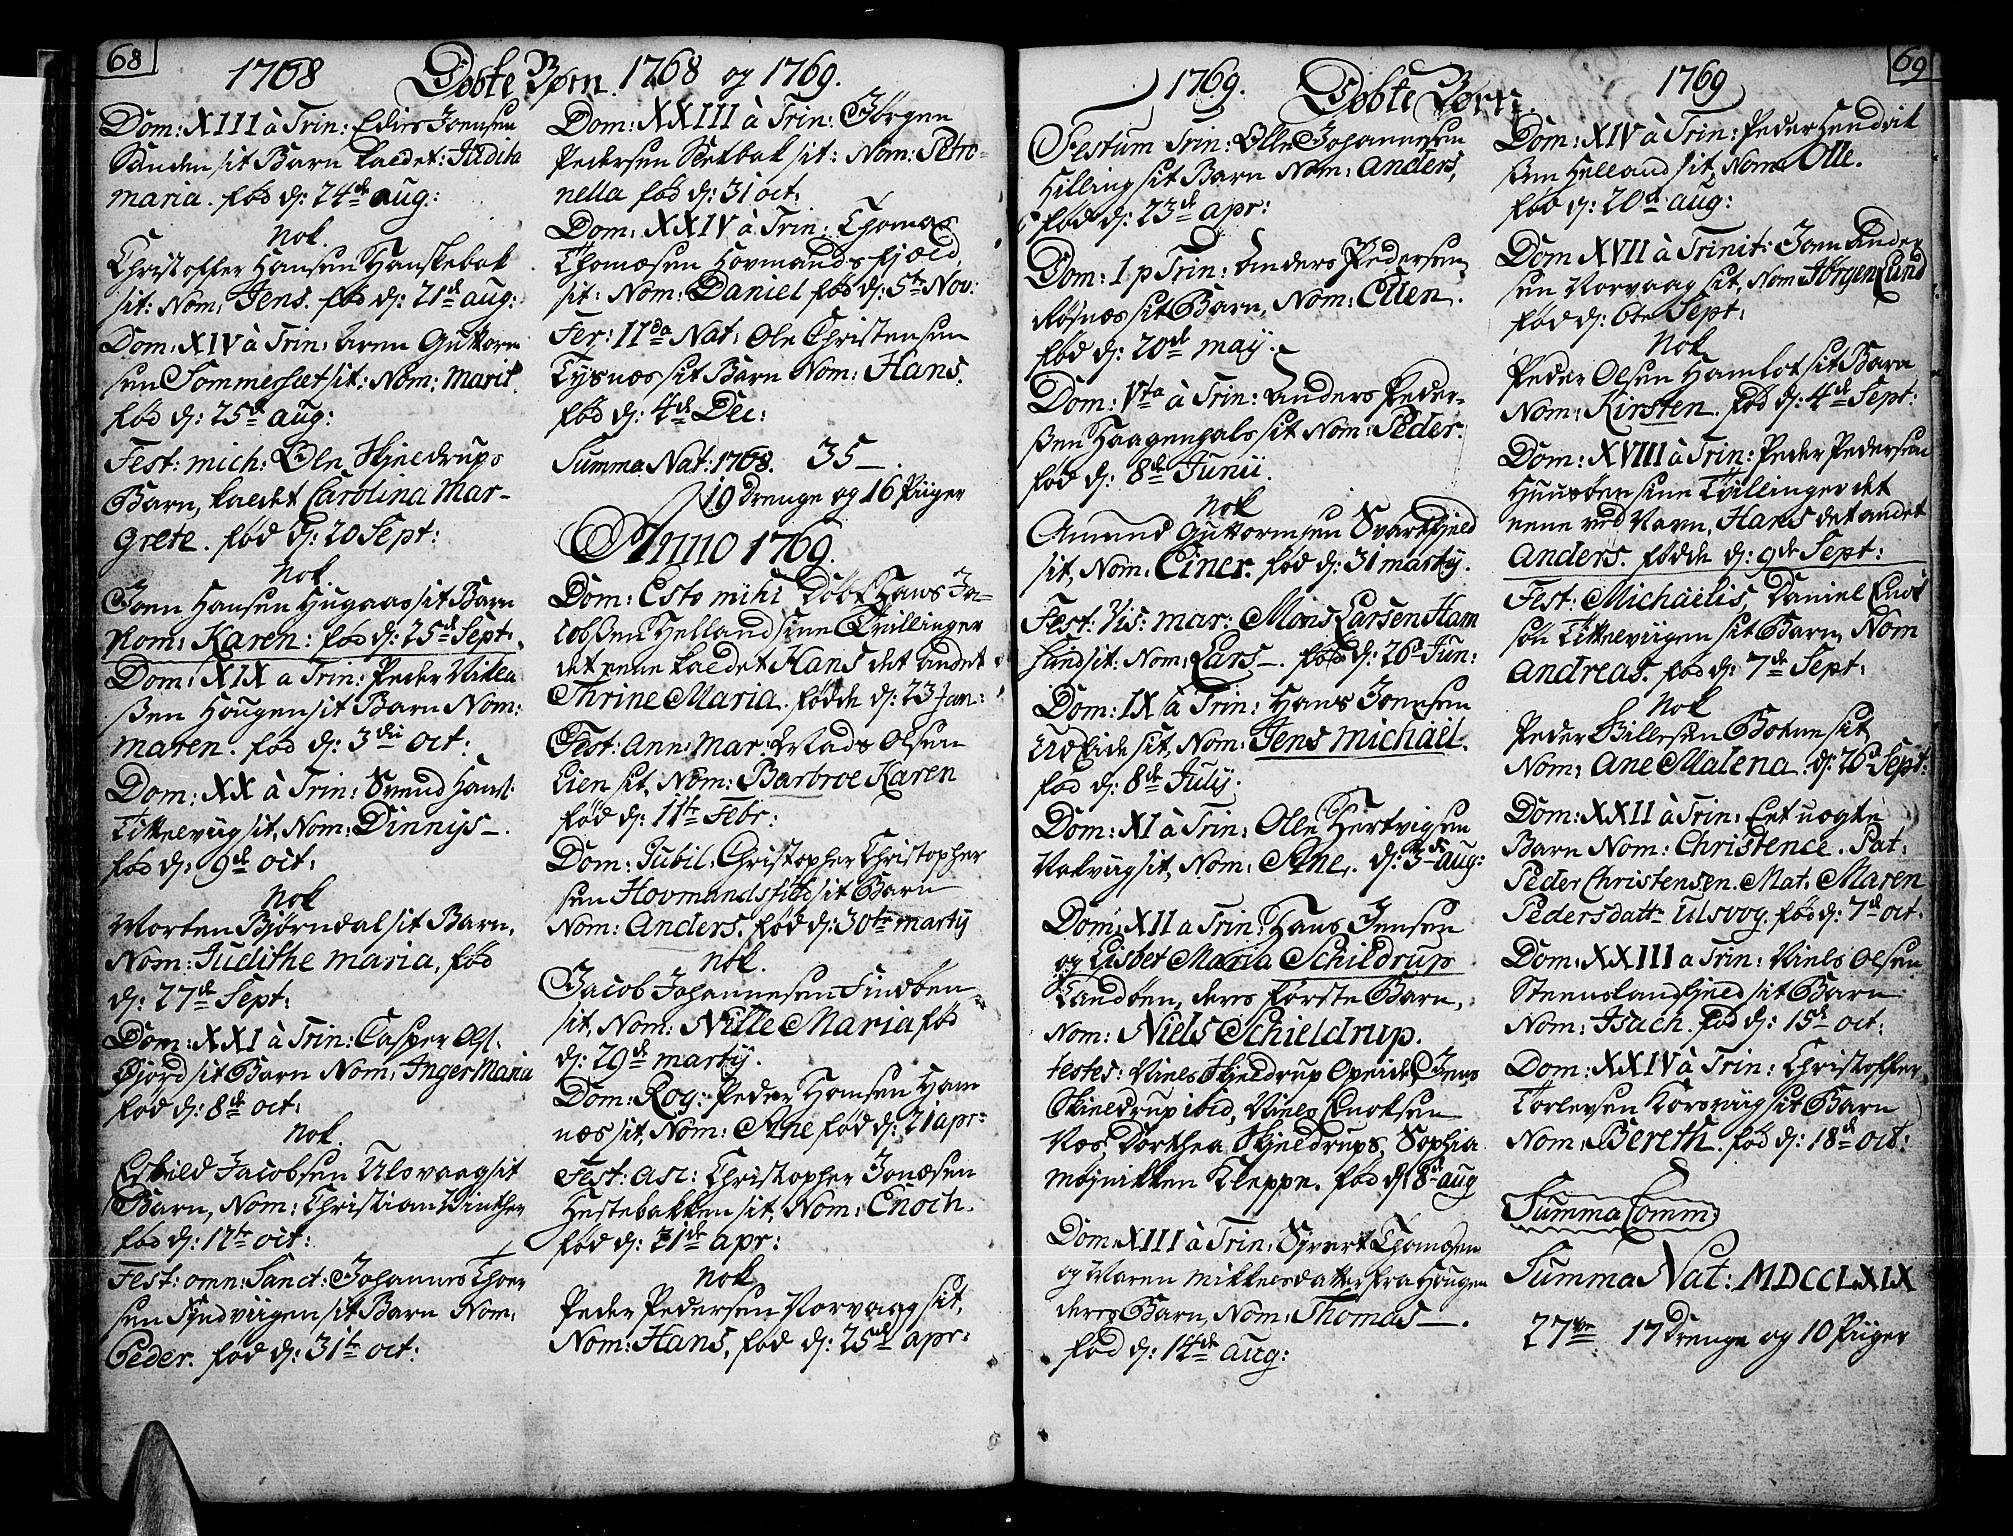 68
1768 Døbte Børn 1768 og 1769.
Dom: XIII à Trin: Ediis Joensen
Sanden sit Barn kaldet: Judita
maria. fød d: 24de aug:
Nok.
Christoffer Hansen Hanskebak
sit: Nom: Jens. fød d: 21de aug:
Dom: XIV à Trin: Aren Guttorm
sen Sommerset sit: Nom: Marit.
fød d: 25de aug:
Fest: mich: Ole Skjeldrups
Barn, kaldet Carolina Mar-
grete. fød d: 20 Sept:
Nok.
Joen Hansen Hugaas sit Barn
Nom: Karen: fød d: 25de Sept:
Dom: XIX a Trin: Peder Nikla
ßen Hougen sit Barn Nom:
maren. fød d: 3die oct:
Dom: XX à Trin: Svend Hans:
Tittelviig sit, Nom: Dinnijs.
fød d: 9de oct:
Nok
Morten Bjørndal sit Barn,
Nom: Judithe maria, fød
d: 27de Sept:
Dom: XXI à Trin: Casper Ols:
Fjord sit Barn Nom: Inger Maria
fød d: 8de oct:
Nok.
Eskild Jacobsen Ulsvaag sit
Barn, Nom: Christian Winther
fød d: 17te oct:
Fest: omn: Sanct: Johannes Thor
sen Findviigen sit Barn Nom:
Peder. fød d: 31te oct:
Dom: XXIII à Trin: Jørgen
Pedersen Sætbak sit: Nom: Petro-
nella fød d: 31 oct:
Dom: XXIV à Trin: Thomas
Thomæsen Hovmandsfjæld,
sit: Nom: Daniel fød d: 5te Nov:
Fer: IIda Nat: Ole Christensen
Tysnæs sit Barn Nom: Hans.
fød d: 4de Dec:
Summa Nat: 1768. 35 —.
19 Drenge og 16 Piiger
Anno 1769.
Dom: Esto mihi Døbt Hans Ja-
cobßen Helland sine Tvillinger
det eene kaldet Hans det andet
Thrine Maria. fødde d: 23 Jan:
Fest: Ann: Mar: Mads Olsen
Lien sit, Nom: Barbroe Karen
fød d: 11te Febr:
Dom: Jubil: Christopher Christopher
sen Hovmandsfield sit Barn
Nom: Anders. fød d: 30te martij
Nok.
Jacob Johannesen Findøen
sit, Nom: Nille Maria fød
d: 29de martij.
Dom: Rog: Peder Hansen Ham
næs sit, Nom: Ane fød d: 21 apr:
Fest: asc: Christopher Jonæsen
Hestebakken sit, Nom: Enoch.
fød d: 21de apr:
Nok
Peder Pedersen Korvaag sit,
Nom: Hans, fød d: 25de apr:
69
1769. Døbte Børn. 1769
Festum Trin: Olle Johannesen
Hilling sit Barn Nom: Anders,
fød d: 23de apr:
Dom: I p Trin: Anders Pedersen
Røsnæs sit Barn, Nom: Ellen.
fød d: 20de may.
Dom: Vta à Trin: Anders Peder-
ßen Haagenhals sit Nom: Peder.
fød d: 8de Junii.
Nok
Amund Guttormsen Svartfield
sit, Nom: Einer. fød d: 31 martij.
Fest: Vis: mar: Mons Larsen Ham
sund sit: Nom: Lars —. fød d: 26de Jun:
Dom: IX à Trin: Hans Jonesen
Ulfeide sit, Nom: Jens Michail.
fød d: 8de July.
Dom: XI à Trin: Olle Hertvigsen
Nakviig sit, Nom: Ane. d: 3de aug:
Dom: XII a Trin: Hans Jensen
og Lisbet Maria Schildrup
Landøen, ders første Barn,
Nom: Niels Schieldrup.
testes: Niels Skjeldrup Opeide, Jens
Skieldrup ibid, Niels Enoksen
Næs, Dorthea Skjeldrups, Sophia
Møjnikken Kleppe. fød d: 8de aug
Dom: XIII à Trin: Sivert Thomæsen
og Maren Mikkelsdatter fra Hougen
deres Barn, Nom: Thomas —.
fød d: 14de aug:
Dom: XIV à Trin: Peder Hendrik
ßen Helland sit, Nom: Olle.
fød d: 20de aug:
Dom XVII à Trinit: Joen Ander
sen Korvaag sit, Nom Jørgen Lund
fød d: 6te Sept:
Nok
Peder Olsen Hamlot sit Barn
Nom: Kirsten. fød d: 4de Sept:
Dom: XVIII à Trin: Peder Pedersen
Huusøen sine Tvillinger det
eene ved Navn, Hans det andet
Anders. fødde d: 9de Sept:
Fest: Michaelis, Daniel Knut
søn Tittelviigen sit Barn, Nom
Andreas. fød d: 7de Sept:
Nok
Peder Billesen Botnen sit
Nom: Ane Malena. d: 26de Sept:
Dom: XXII à Trin: Eet uægte
Barn Nom: Christence. Pat:
Peder Christensen. Mat: Maren
Pedersdattr Ulsvog. fød d: 7de oct:
Dom: XXIII a Trin: Niels Olsen
Steenslandfield sit Barn
Nom: Isach. fød d: 15de oct:
Dom: XXIV à Trin: Christoffer
Torlevsen Korsviig sit Barn
Nom: Bereth. fød d: 18de oct:
Summa Comm:
Summa Nat: MDCCLXIX
27ve 17 Drenge og 10 Piiger